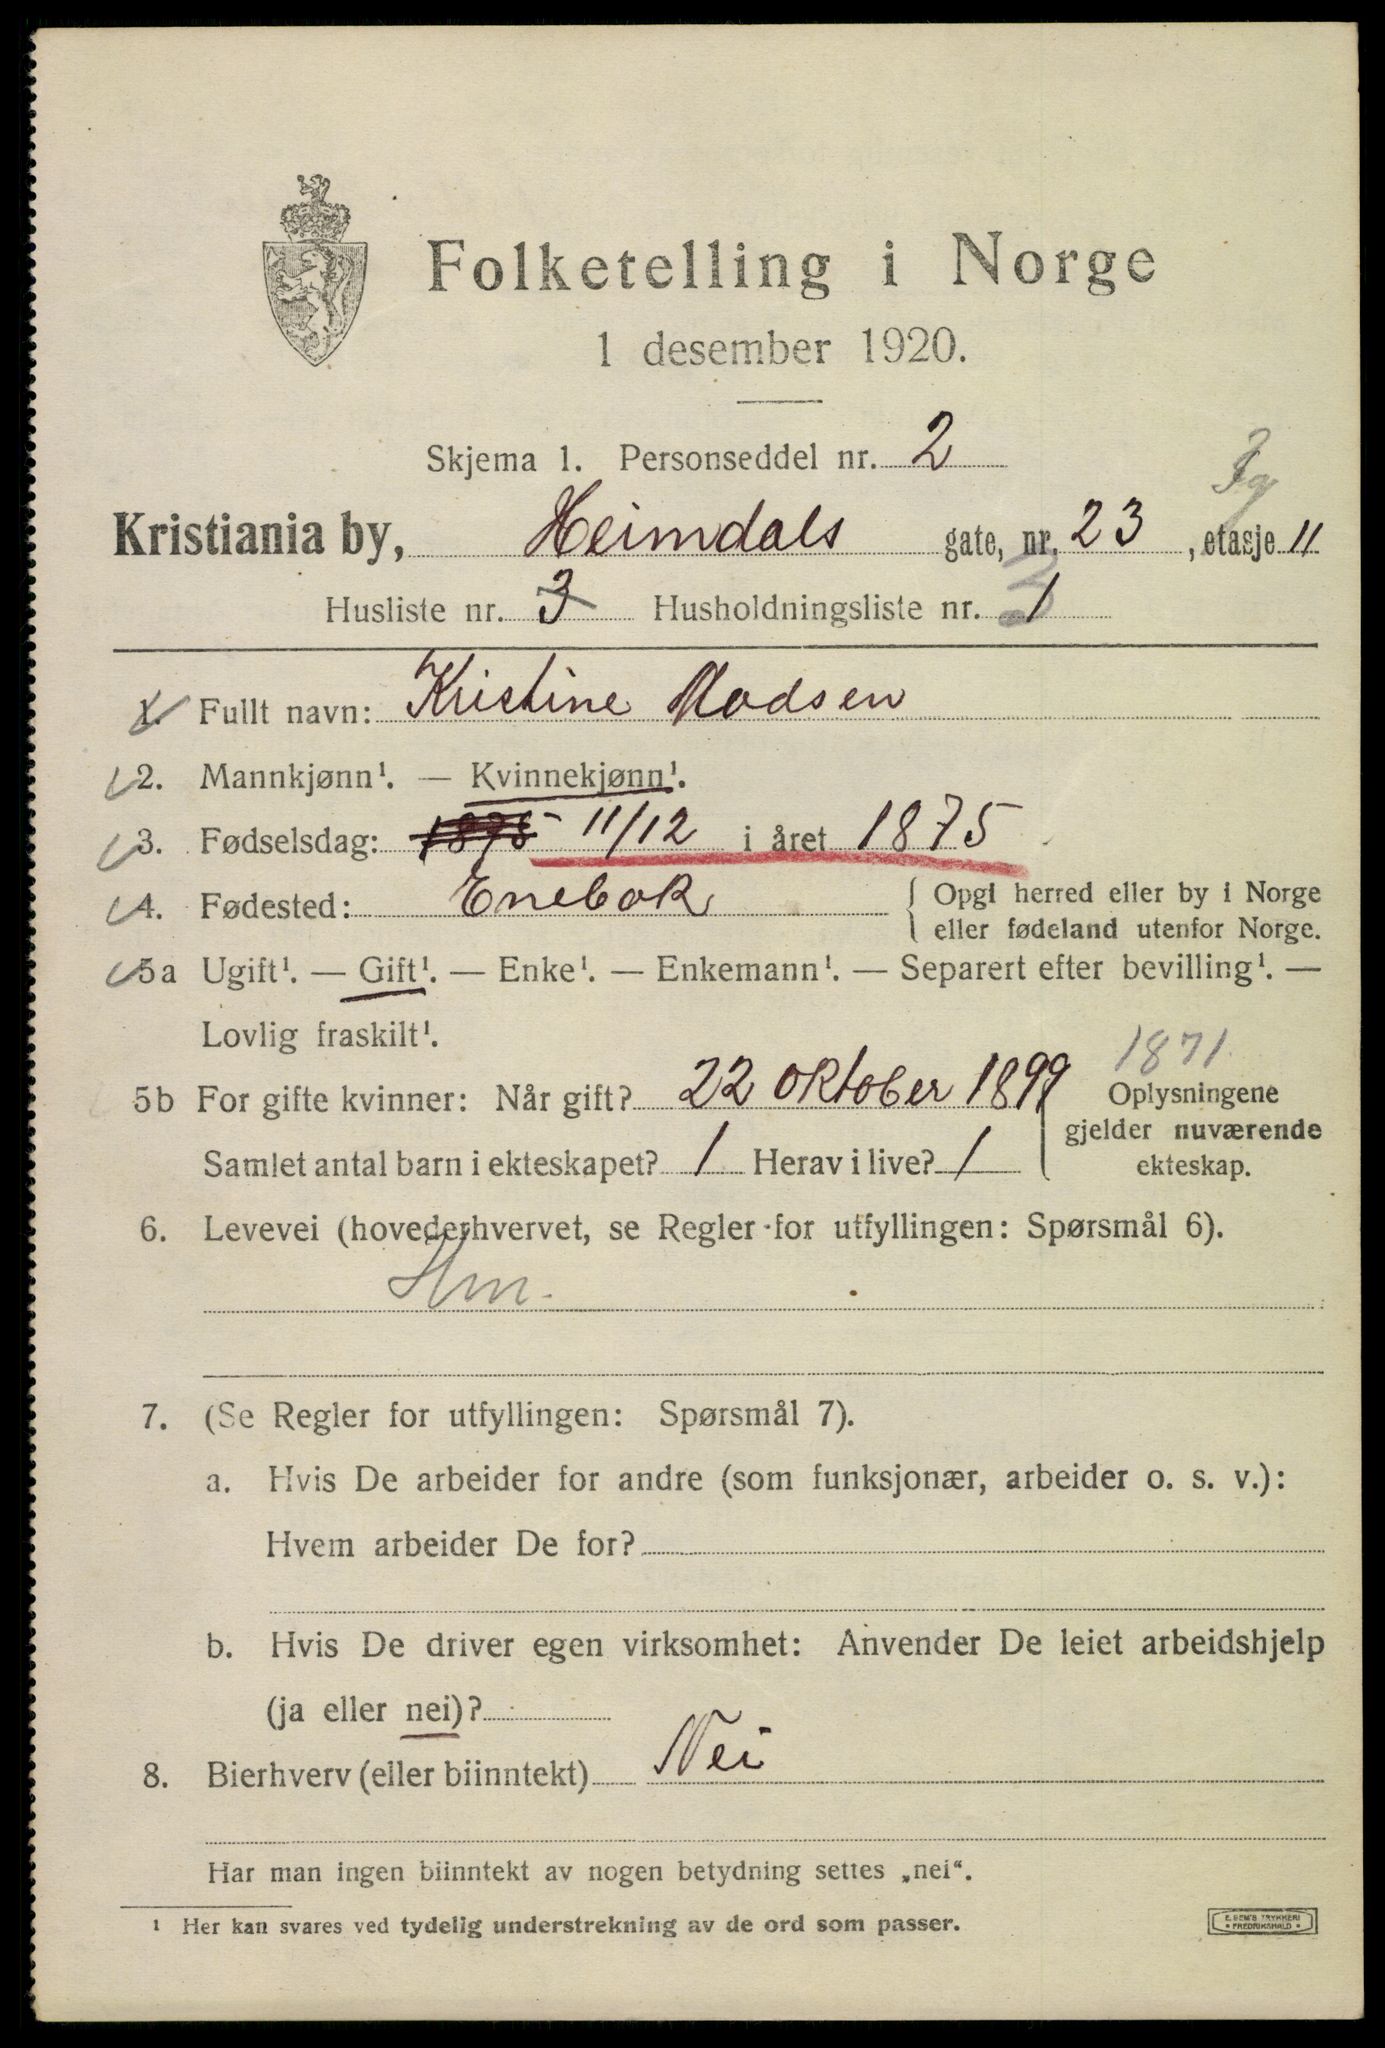 Folketelling i Norge
1 desember 1920.
Skjema 1. Personseddel nr. 2
Kristiania by, Heimdals gate, nr. 23, etasje 11
Husliste nr. 3 Husholdningsliste nr. 1
1. Fullt navn: Kristine Madsen
2. Mannkjønn¹. — Kvinnekjønn¹.
3. Fødselsdag: 1875 11/12 i året 1875
4. Fødested: Enebak { Opgi herred eller by i Norge
eller fødeland utenfor Norge.
5a Ugift¹. — Gift¹. — Enke¹. — Enkemann¹. — Separert efter bevilling¹. —
Lovlig fraskilt¹.
1871
5b For gifte kvinner: Når gift? 22 oktober 1899 Oplysningene
gjelder nuværende
Samlet antal barn i ekteskapet? 1 Herav i live? 1 ekteskap.
6. Levevei (hovederhvervet, se Regler for utfyllingen: Spørsmål 6).
Hm.
7. (Se Regler for utfyllingen: Spørsmål 7).
a. Hvis De arbeider for andre (som funksjonær, arbeider o. s. v.):
Hvem arbeider De for?
b. Hvis De driver egen virksomhet: Anvender De leiet arbeidshjelp
(ja eller nei)?
8. Bierhverv (eller biinntekt) Nei
Har man ingen biinntekt av nogen betydning settes „nei“.
¹ Her kan svares ved tydelig understrekning av de ord som passer.
E. SEM'S TRYKKERI
• FREDRIKSHALD •